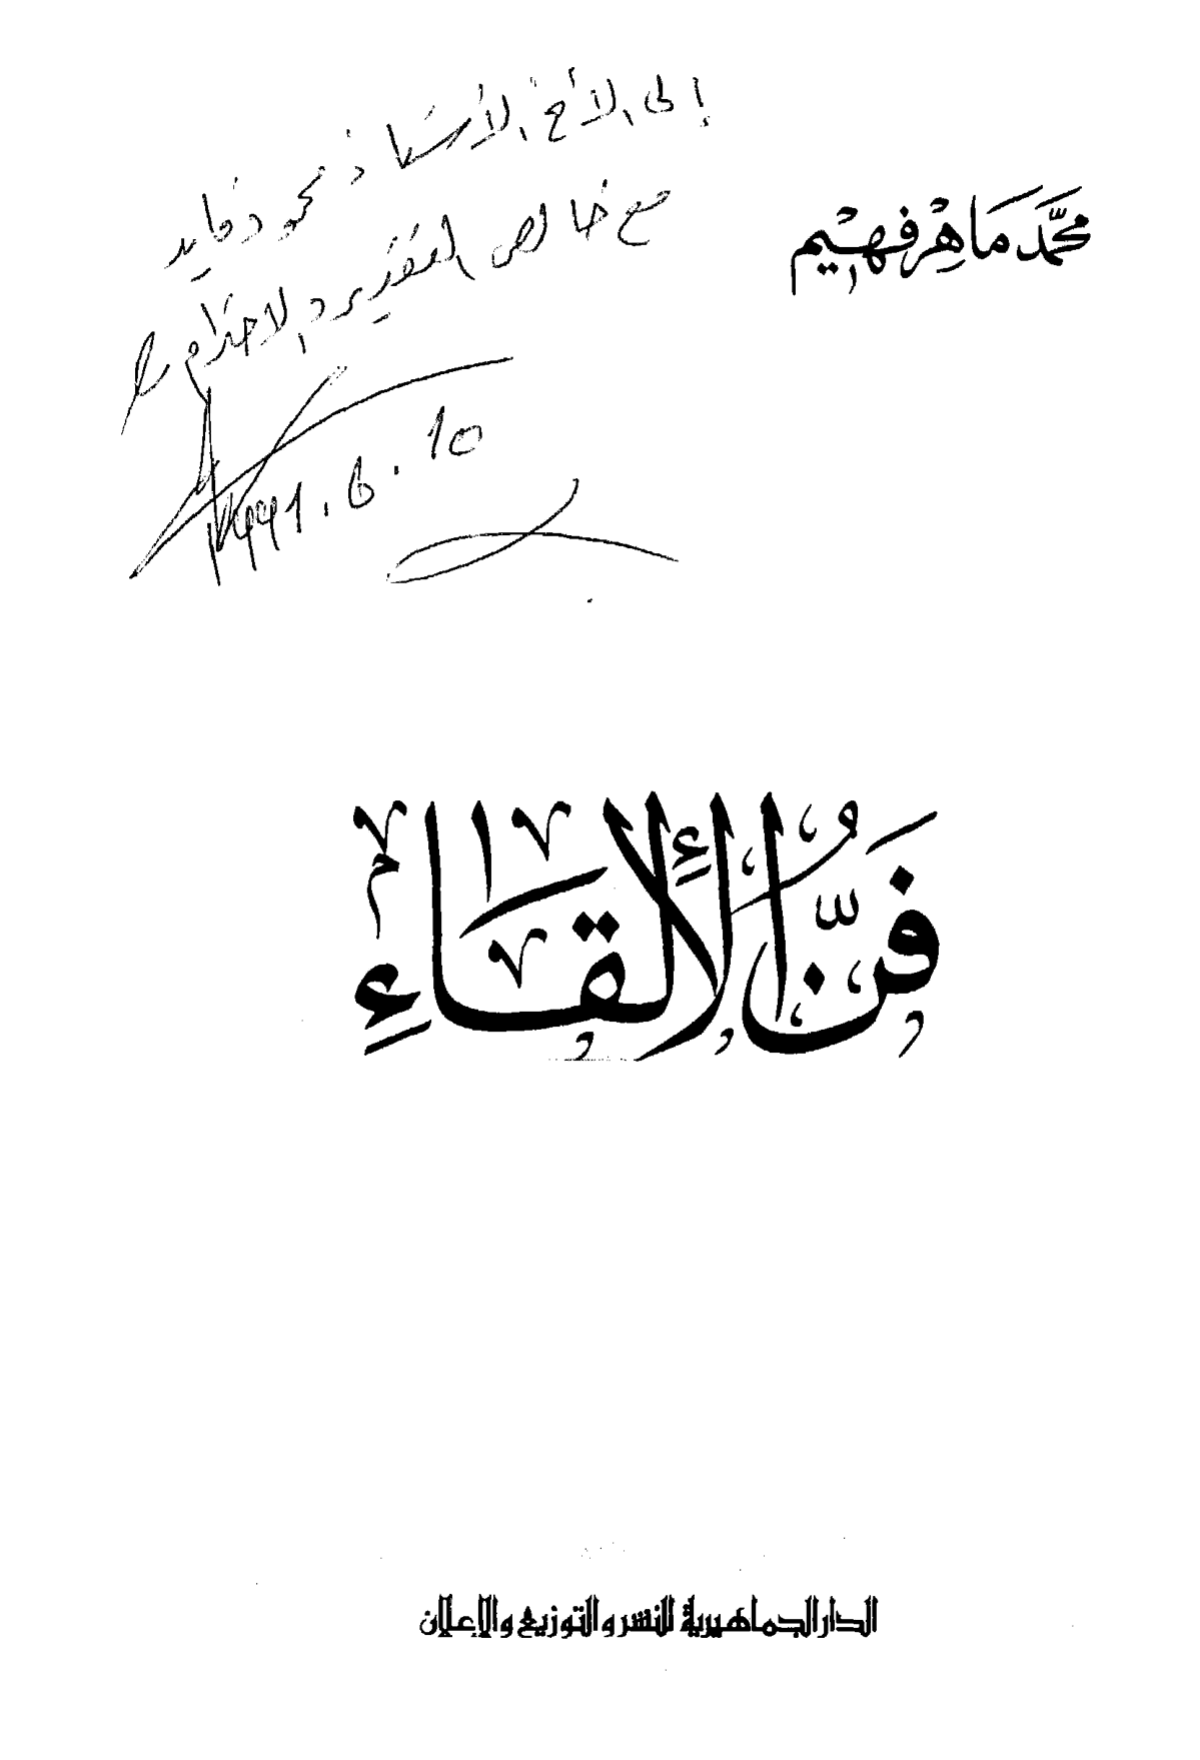 إلى الأخ الأستاذ محمود فايد
مع خالص التقدير والاحترام
محمد ماهر فهيم
فَنُّ الإِلْقَاءِ
الدار الجماهيرية للنشر والتوزيع والإعلان